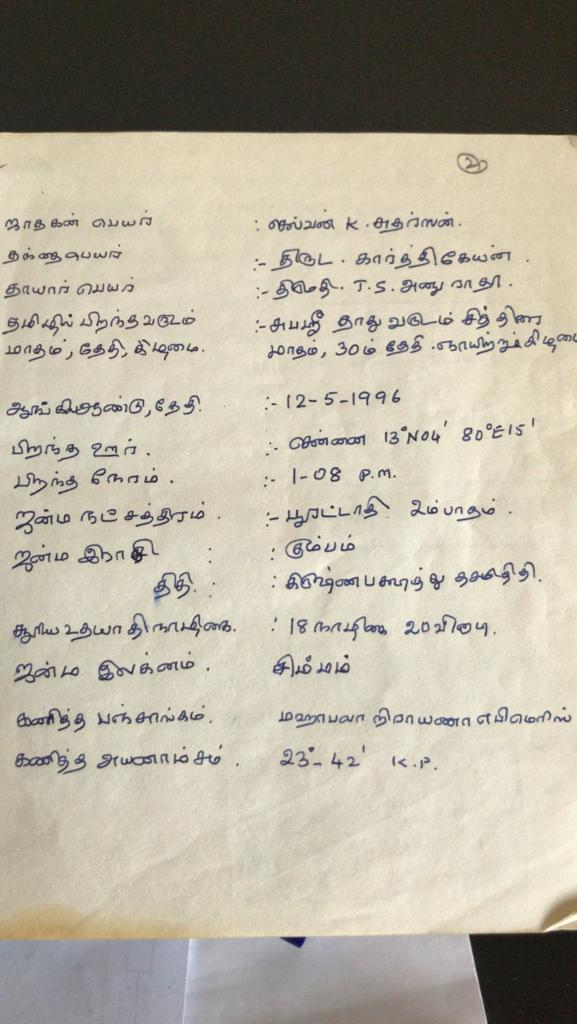 2
ஜாதகன் பெயர் : செல்வன் K. சுதர்ஸன்.
தந்தைபெயர் :- திரு. கார்த்திகேயன்.
தாயார் பெயர் :- திருமதி. T.S. அனுராதா.
தமிழில் பிறந்த வருடம் :- சுபஸ்ரீ தாது வருடம் சித்திரை
மாதம், தேதி, கிழமை. மாதம், 30ம் தேதி. ஞாயிற்றுக்கிழமை
ஆங்கிலஆண்டு, தேதி. :- 12-5-1996
பிறந்த ஊர். :- சென்னை 13°N04' 80°E15'
பிறந்த நேரம். :- 1-08 P.M.
ஜன்ம நட்சத்திரம். :- பூரட்டாதி 2ம்பாதம்.
ஜன்ம இராசி : : கும்பம்
திதி. : : கிருஷ்ணபக்ஷத்து தசமிதிதி.
சூரிய உதயாதி நாழிகை. : 18 நாழிகை 20 விநாடி.
ஜன்ம இலக்னம். சிம்மம்
கணித்த பஞ்சாங்கம். மஹாபலா நிராயணா எபிமெரிஸ்
கணித்த அயனாம்சம். 23°-42' K.P.